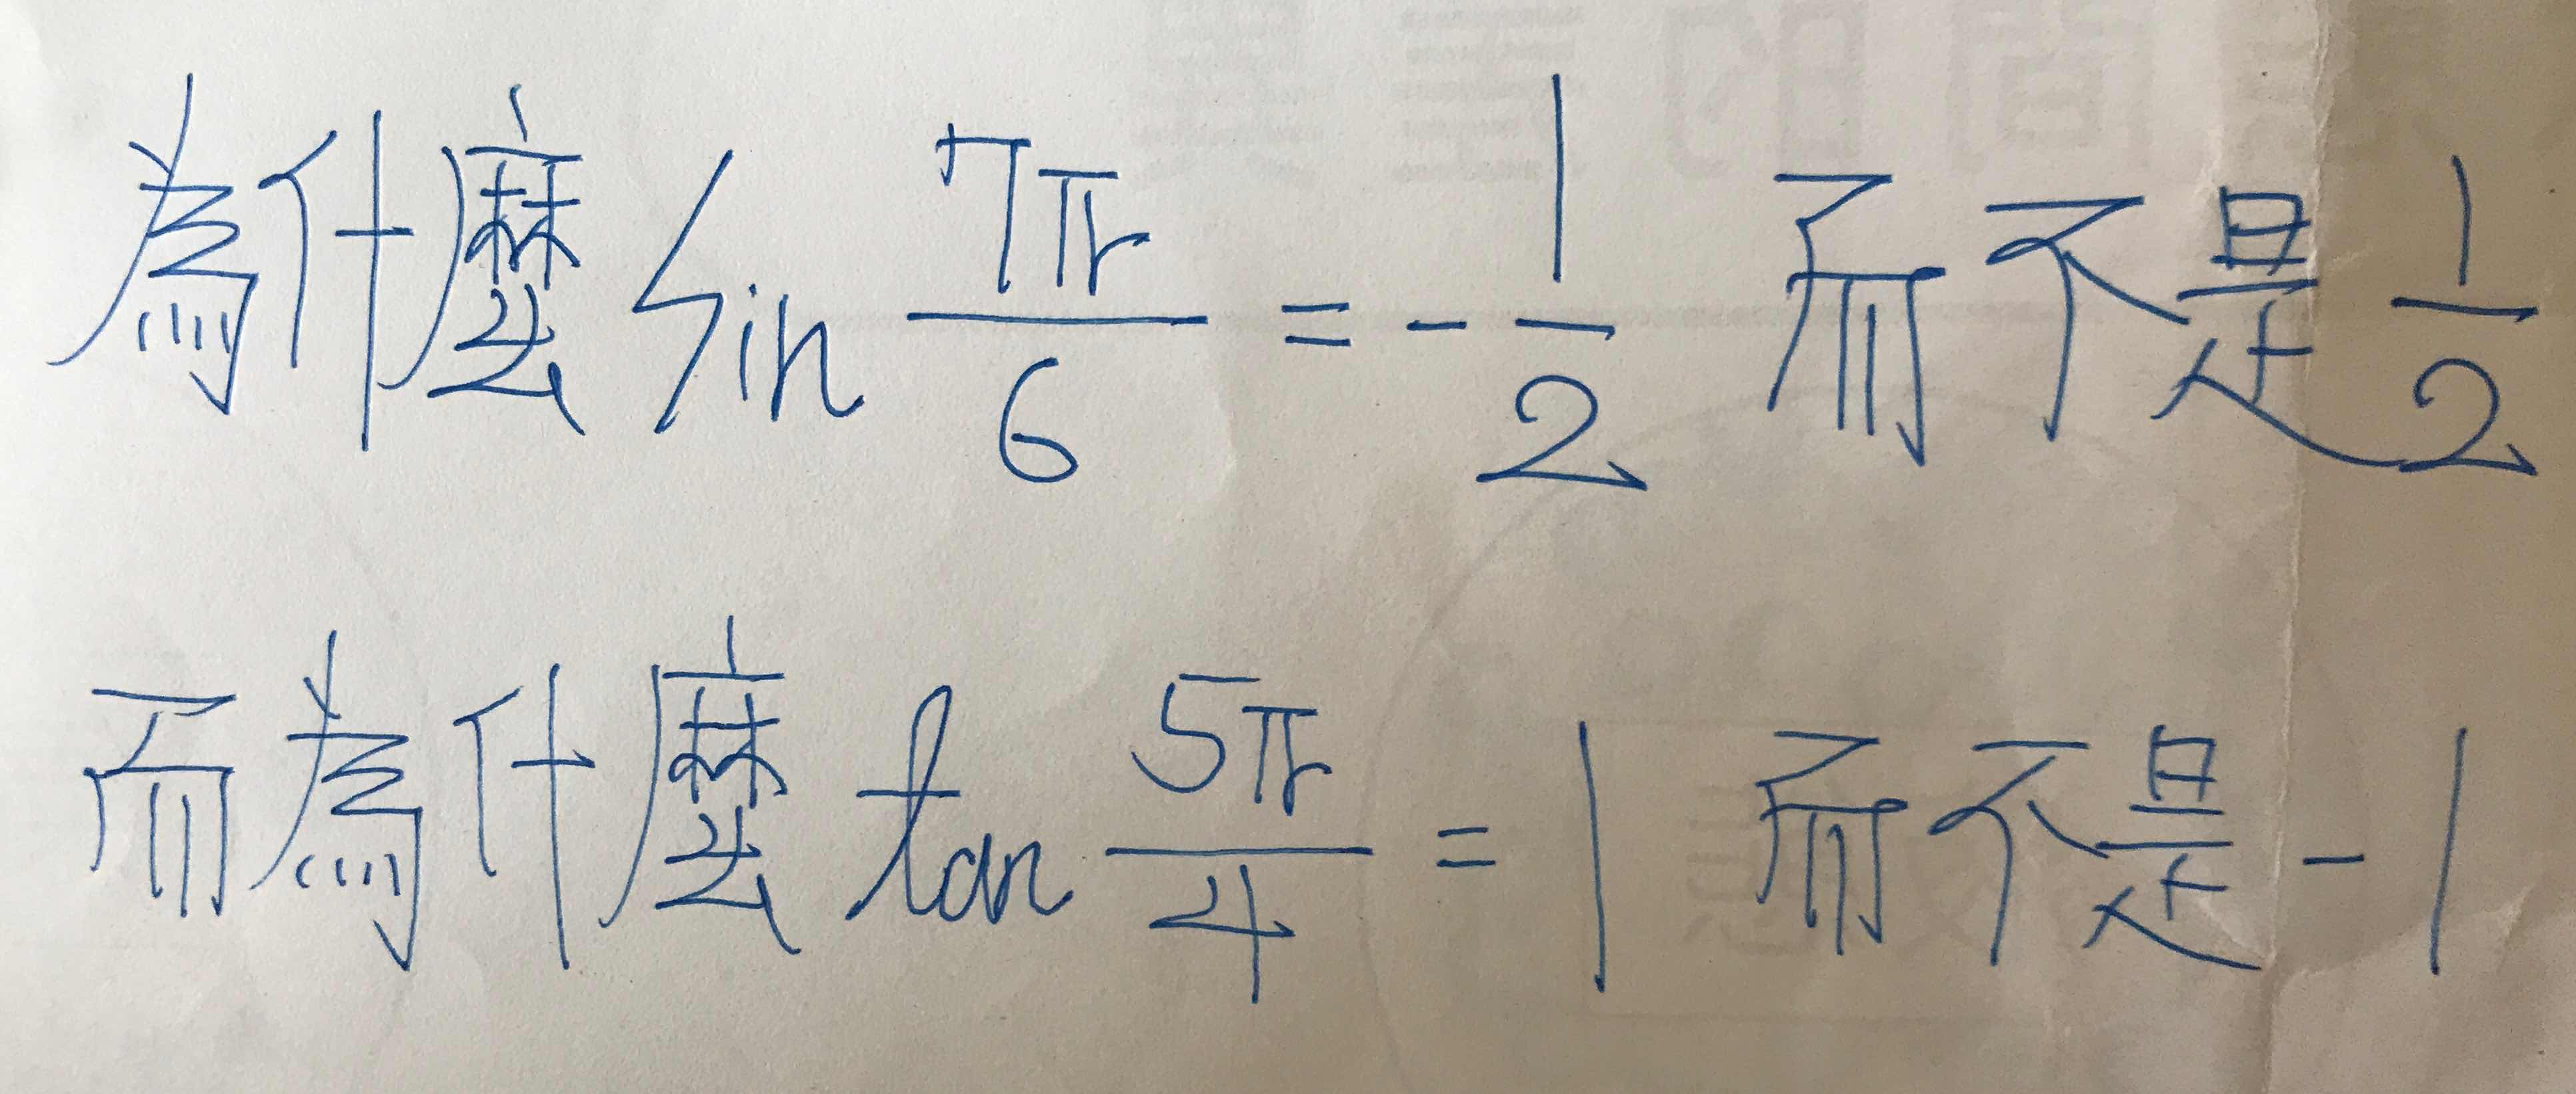 為什麼 sin 7π/6 = -1/2 而不是 1/2
而為什麼 tan 5π/4 = 1 而不是 -1